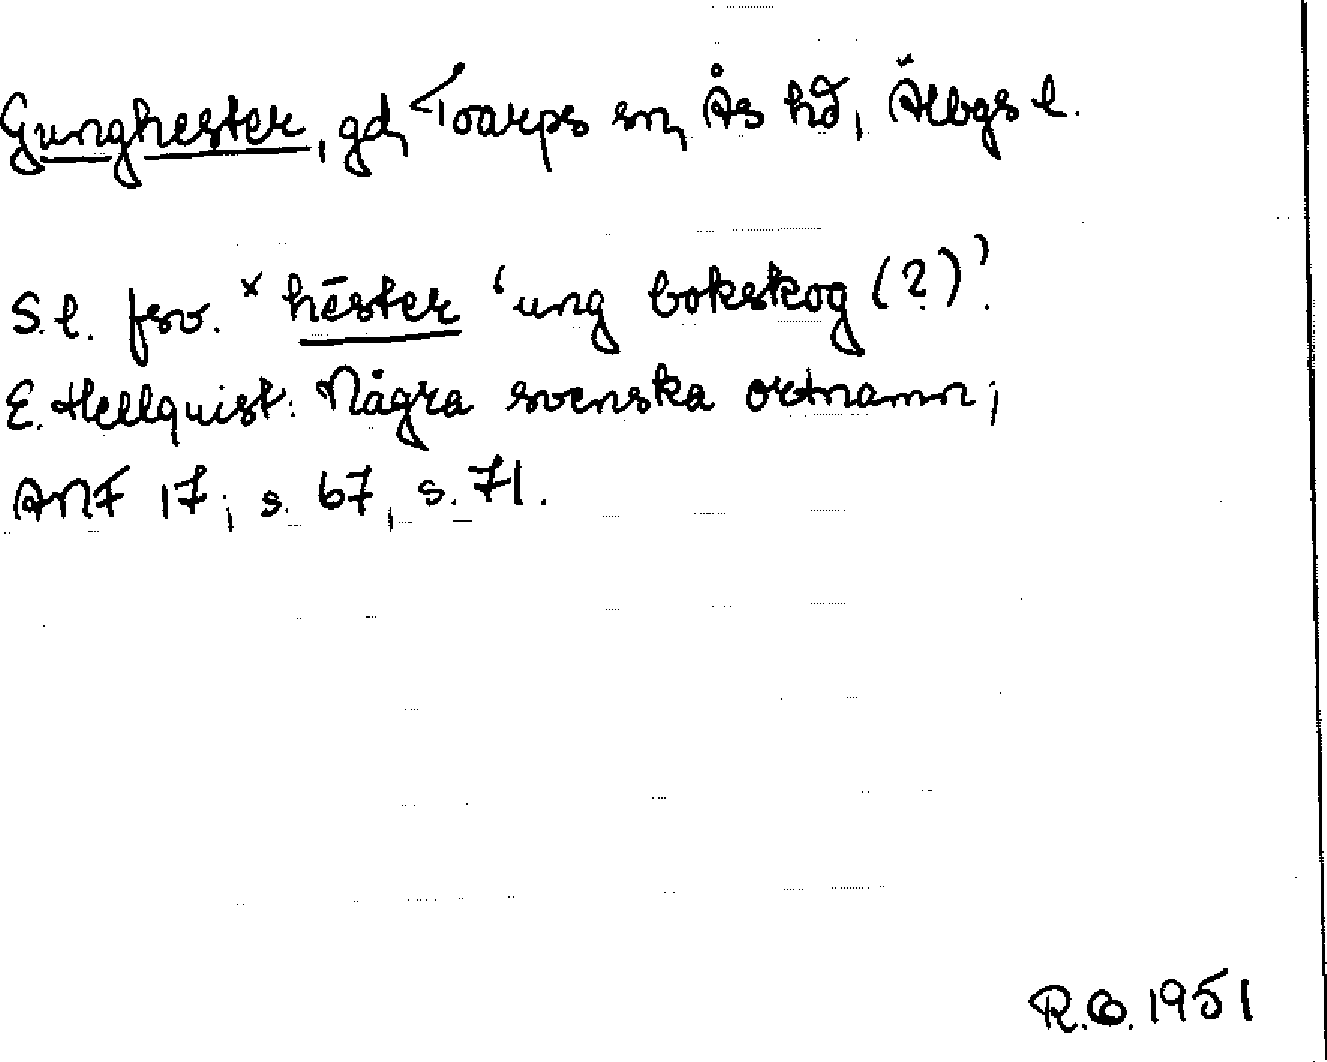 Gunghester, gd, Toarps sn, Ås hd, Älbgs l.
S.l. fsv. ˣhēster ‘ung bokskog (?)’.
E. Hellquist: Några svenska ortnamn;
ANF 17, s. 67, s. 71.
R.O. 1951